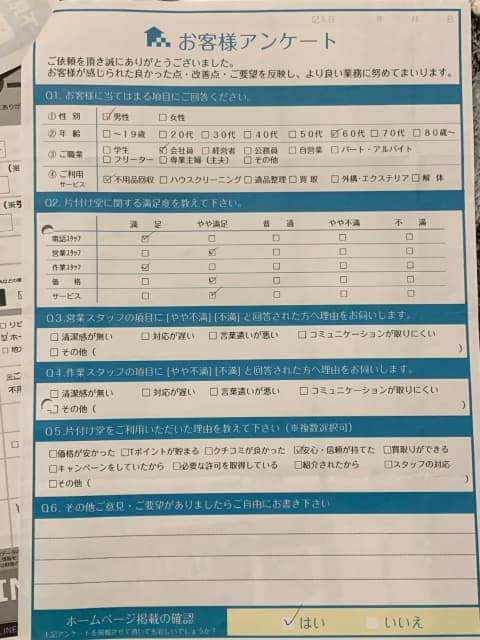 記入日 年 月 日
お客様アンケート
ご依頼を頂き誠にありがとうございました。
お客様が感じられた良かった点・改善点・ご要望を反映し、より良い業務に努めてまいります。
Q1. お客様に当てはまる項目にご回答ください。
① 性 別 ☑男性 □女性
② 年 齢 □～19歳 □20代 □30代 □40代 □50代 ☑60代 □70代 □80歳～
③ ご職業 □学生 ☑会社員 □経営者 □公務員 □自営業 □パート・アルバイト
□フリーター □専業主婦（主夫） □その他
④ ご利用サービス ☑不用品回収 □ハウスクリーニング □遺品整理 □買取 □外構・エクステリア □解体
Q2. 片付け堂に関する満足度を教えて下さい。
満 足 やや満足 普 通 やや不満 不 満
電話スタッフ ☑ □ □ □ □
営業スタッフ □ ☑ □ □ □
作業スタッフ ☑ □ □ □ □
価 格 □ ☑ □ □ □
サービス □ ☑ □ □ □
Q3.営業スタッフの項目に[やや不満][不満]と回答された方へ理由をお伺いします。
□清潔感が無い □対応が遅い □言葉遣いが悪い □コミュニケーションが取りにくい
□その他（ ）
Q4.作業スタッフの項目に[やや不満][不満]と回答された方へ理由をお伺いします。
□清潔感が無い □対応が遅い □言葉遣いが悪い □コミュニケーションが取りにくい
□その他（ ）
Q5.片付け堂をご利用いただいた理由を教えて下さい（※複数選択可）
□価格が安かった □Tポイントが貯まる □クチコミが良かった ☑安心・信頼が持てた □買取りができる
□キャンペーンをしていたから □必要な許可を取得している □紹介されたから □スタッフの対応
□その他（ ）
Q6. その他ご意見・ご要望がありましたらご自由にお書き下さい
ホームページ掲載の確認 ☑はい □いいえ
上記アンケートを掲載させて頂いても宜しいでしょうか？